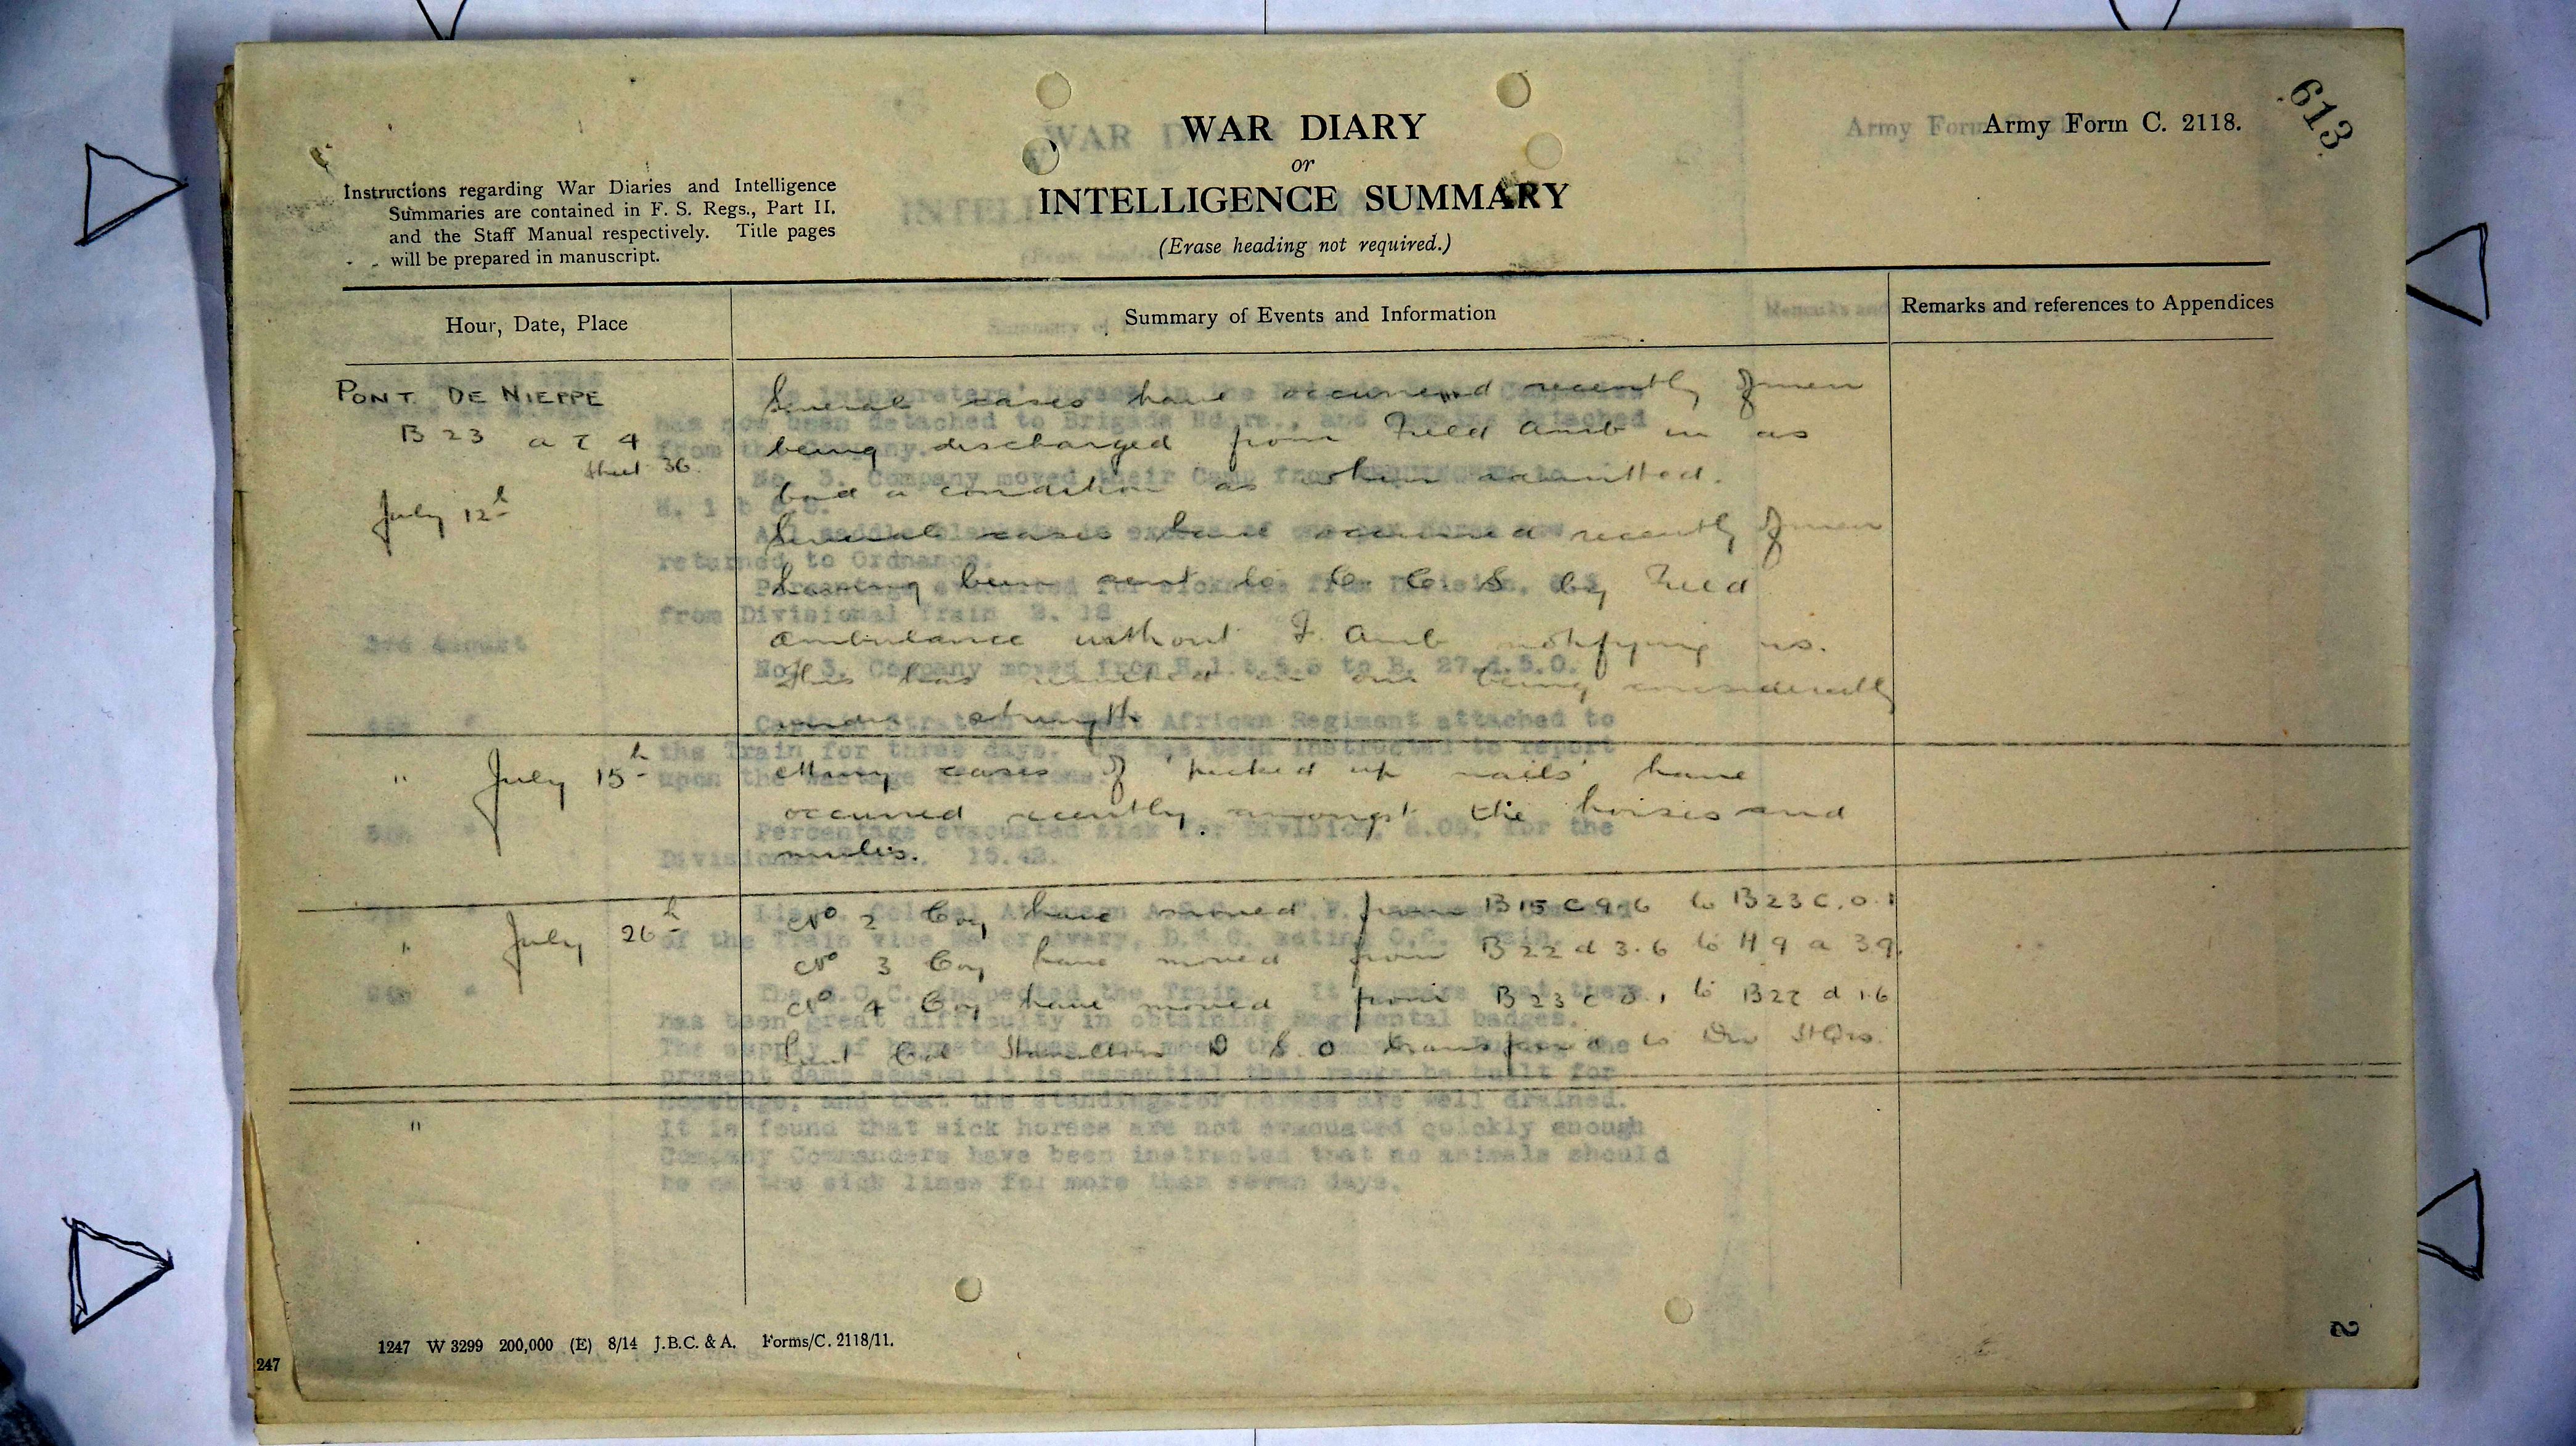 613
Army Form C. 2118.
WAR DIARY
or
INTELLIGENCE SUMMARY
(Erase heading not required.)
Instructions regarding War Diaries and Intelligence
Summaries are contained in F. S. Regs., Part II.
and the Staff Manual respectively. Title pages
will be prepared in manuscript.
Hour, Date, Place
Summary of Events and Information
Remarks and references to Appendices
PONT DE NIEPPE
B 23 a 7 4
Sheet 36.
July 12th
Several cases have occurred recently of men
being discharged from Field Amb in as
bad a condition as when admitted.
Several cases have occurred recently of men
having been sent to C. C. S by Field
Ambulance without F. Amb notifying us.
This has resulted in our being considerably
under strength
" July 15th
Many cases of 'picked up nails' have
occurred recently amongst the horses and
mules.
" July 26th
No 2 Coy have moved from B15 c 9.6 to B23 c.0.1
No 3 Coy have moved from B 22 d 3.6 to H 9 a 3 9.
No 4 Coy have moved from B 23 c 0.1 to B27 d 1.6
Lieut Col Hamilton D S.O transferred to Div HQrs.
"
1247 W 3299 200,000 (E) 8/14 J.B.C. & A. Forms/C. 2118/11.
247
2